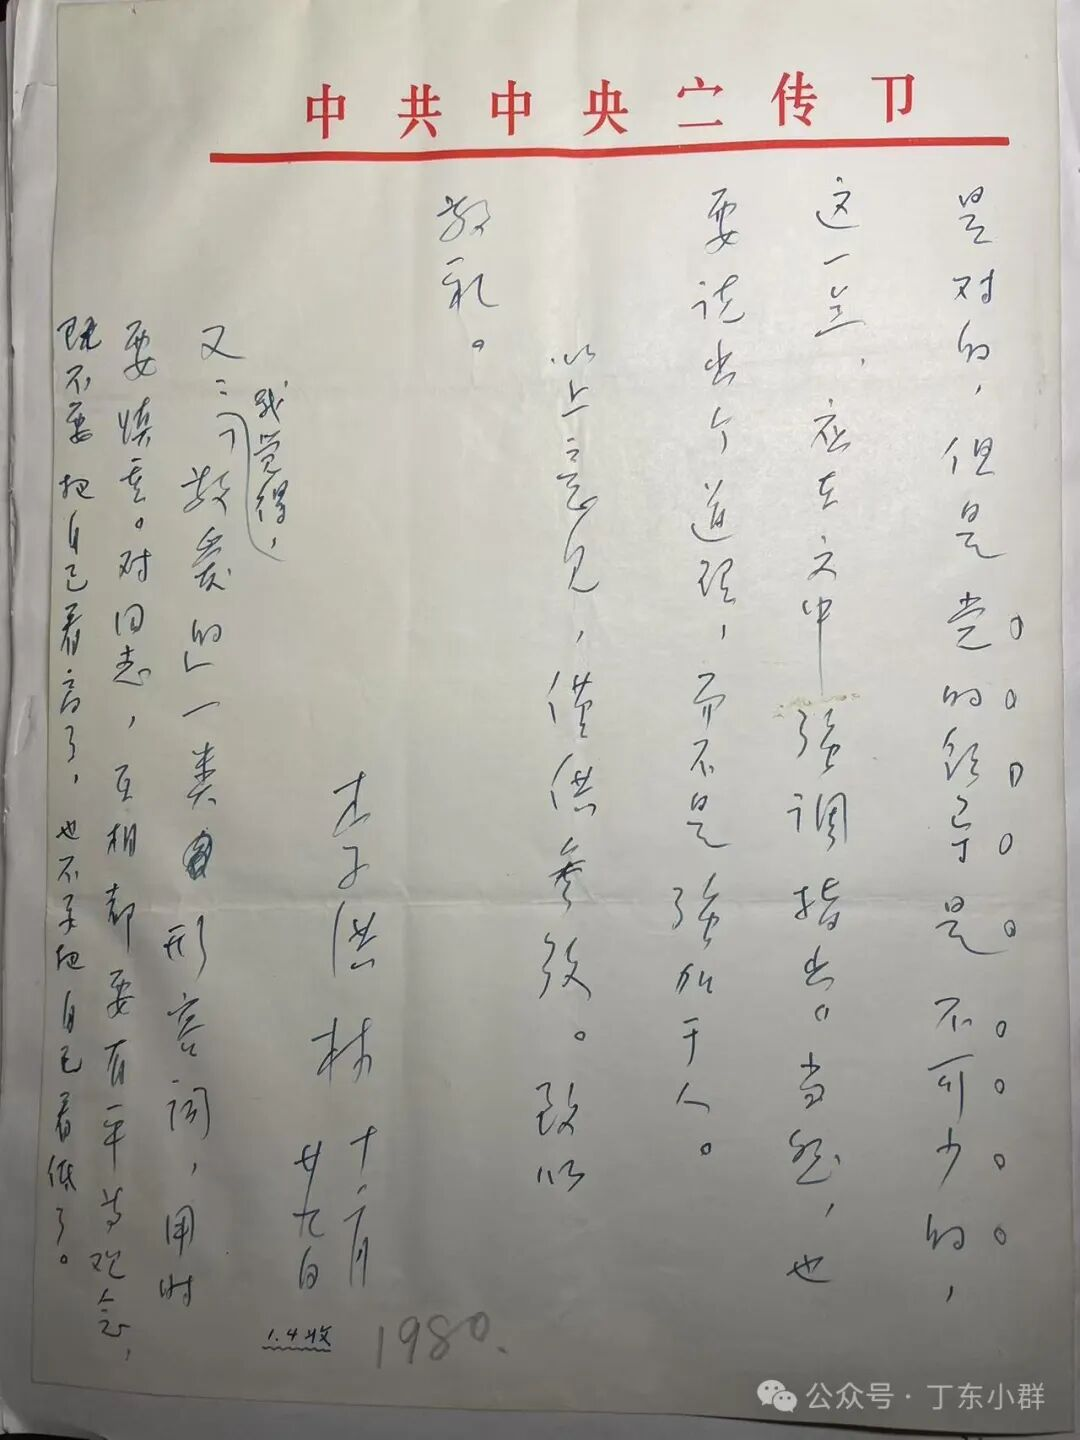 中共中央宣传部
是对的，但是党的领导是不可少的，
这一点，应在文中强调指出。当然，也
要说出个道理，而不是强加于人。
以上意见，仅供参攷。致以
敬礼。
李洪林 十二月
廿九日
又：我觉得，「敬爱的」一类形容词，用时
要慎重。对同志，互相都要有平等观念，
既不要把自己看高了，也不要把自己看低了。
1.4收
1980.
公众号·丁东小群